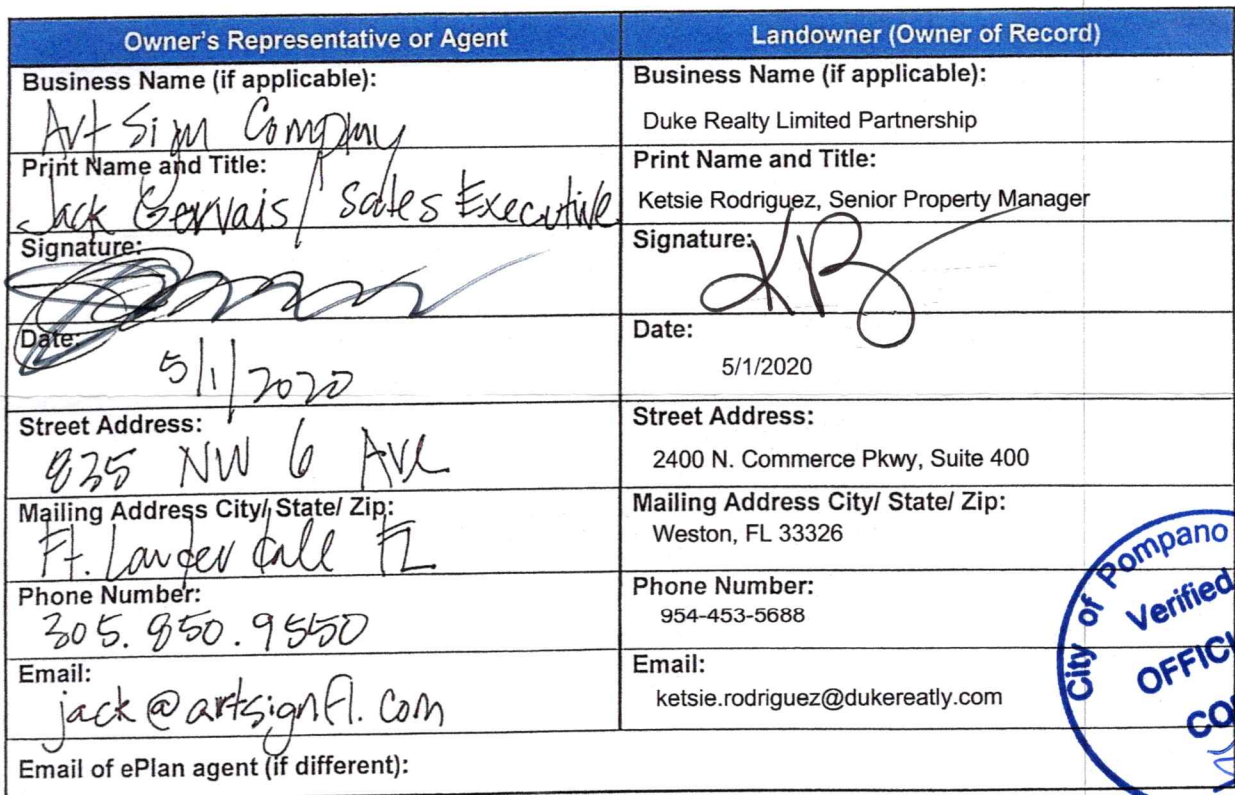 Owner's Representative or Agent
Landowner (Owner of Record)
Business Name (if applicable):
Art Sign Company
Business Name (if applicable):
Duke Realty Limited Partnership
Print Name and Title:
Jack Gervais / Sales Executive
Print Name and Title:
Ketsie Rodriguez, Senior Property Manager
Signature:
Signature:
KR
Date:
5/1/2020
Date:
5/1/2020
Street Address:
835 NW 6 Ave
Street Address:
2400 N. Commerce Pkwy, Suite 400
Mailing Address City/ State/ Zip:
Ft. Lauderdale FL
Mailing Address City/ State/ Zip:
Weston, FL 33326
Phone Number:
305.850.9550
Phone Number:
954-453-5688
Email:
jack@artsignfl.com
Email:
ketsie.rodriguez@dukereatly.com
Email of ePlan agent (if different):
City of Pompano
Verified